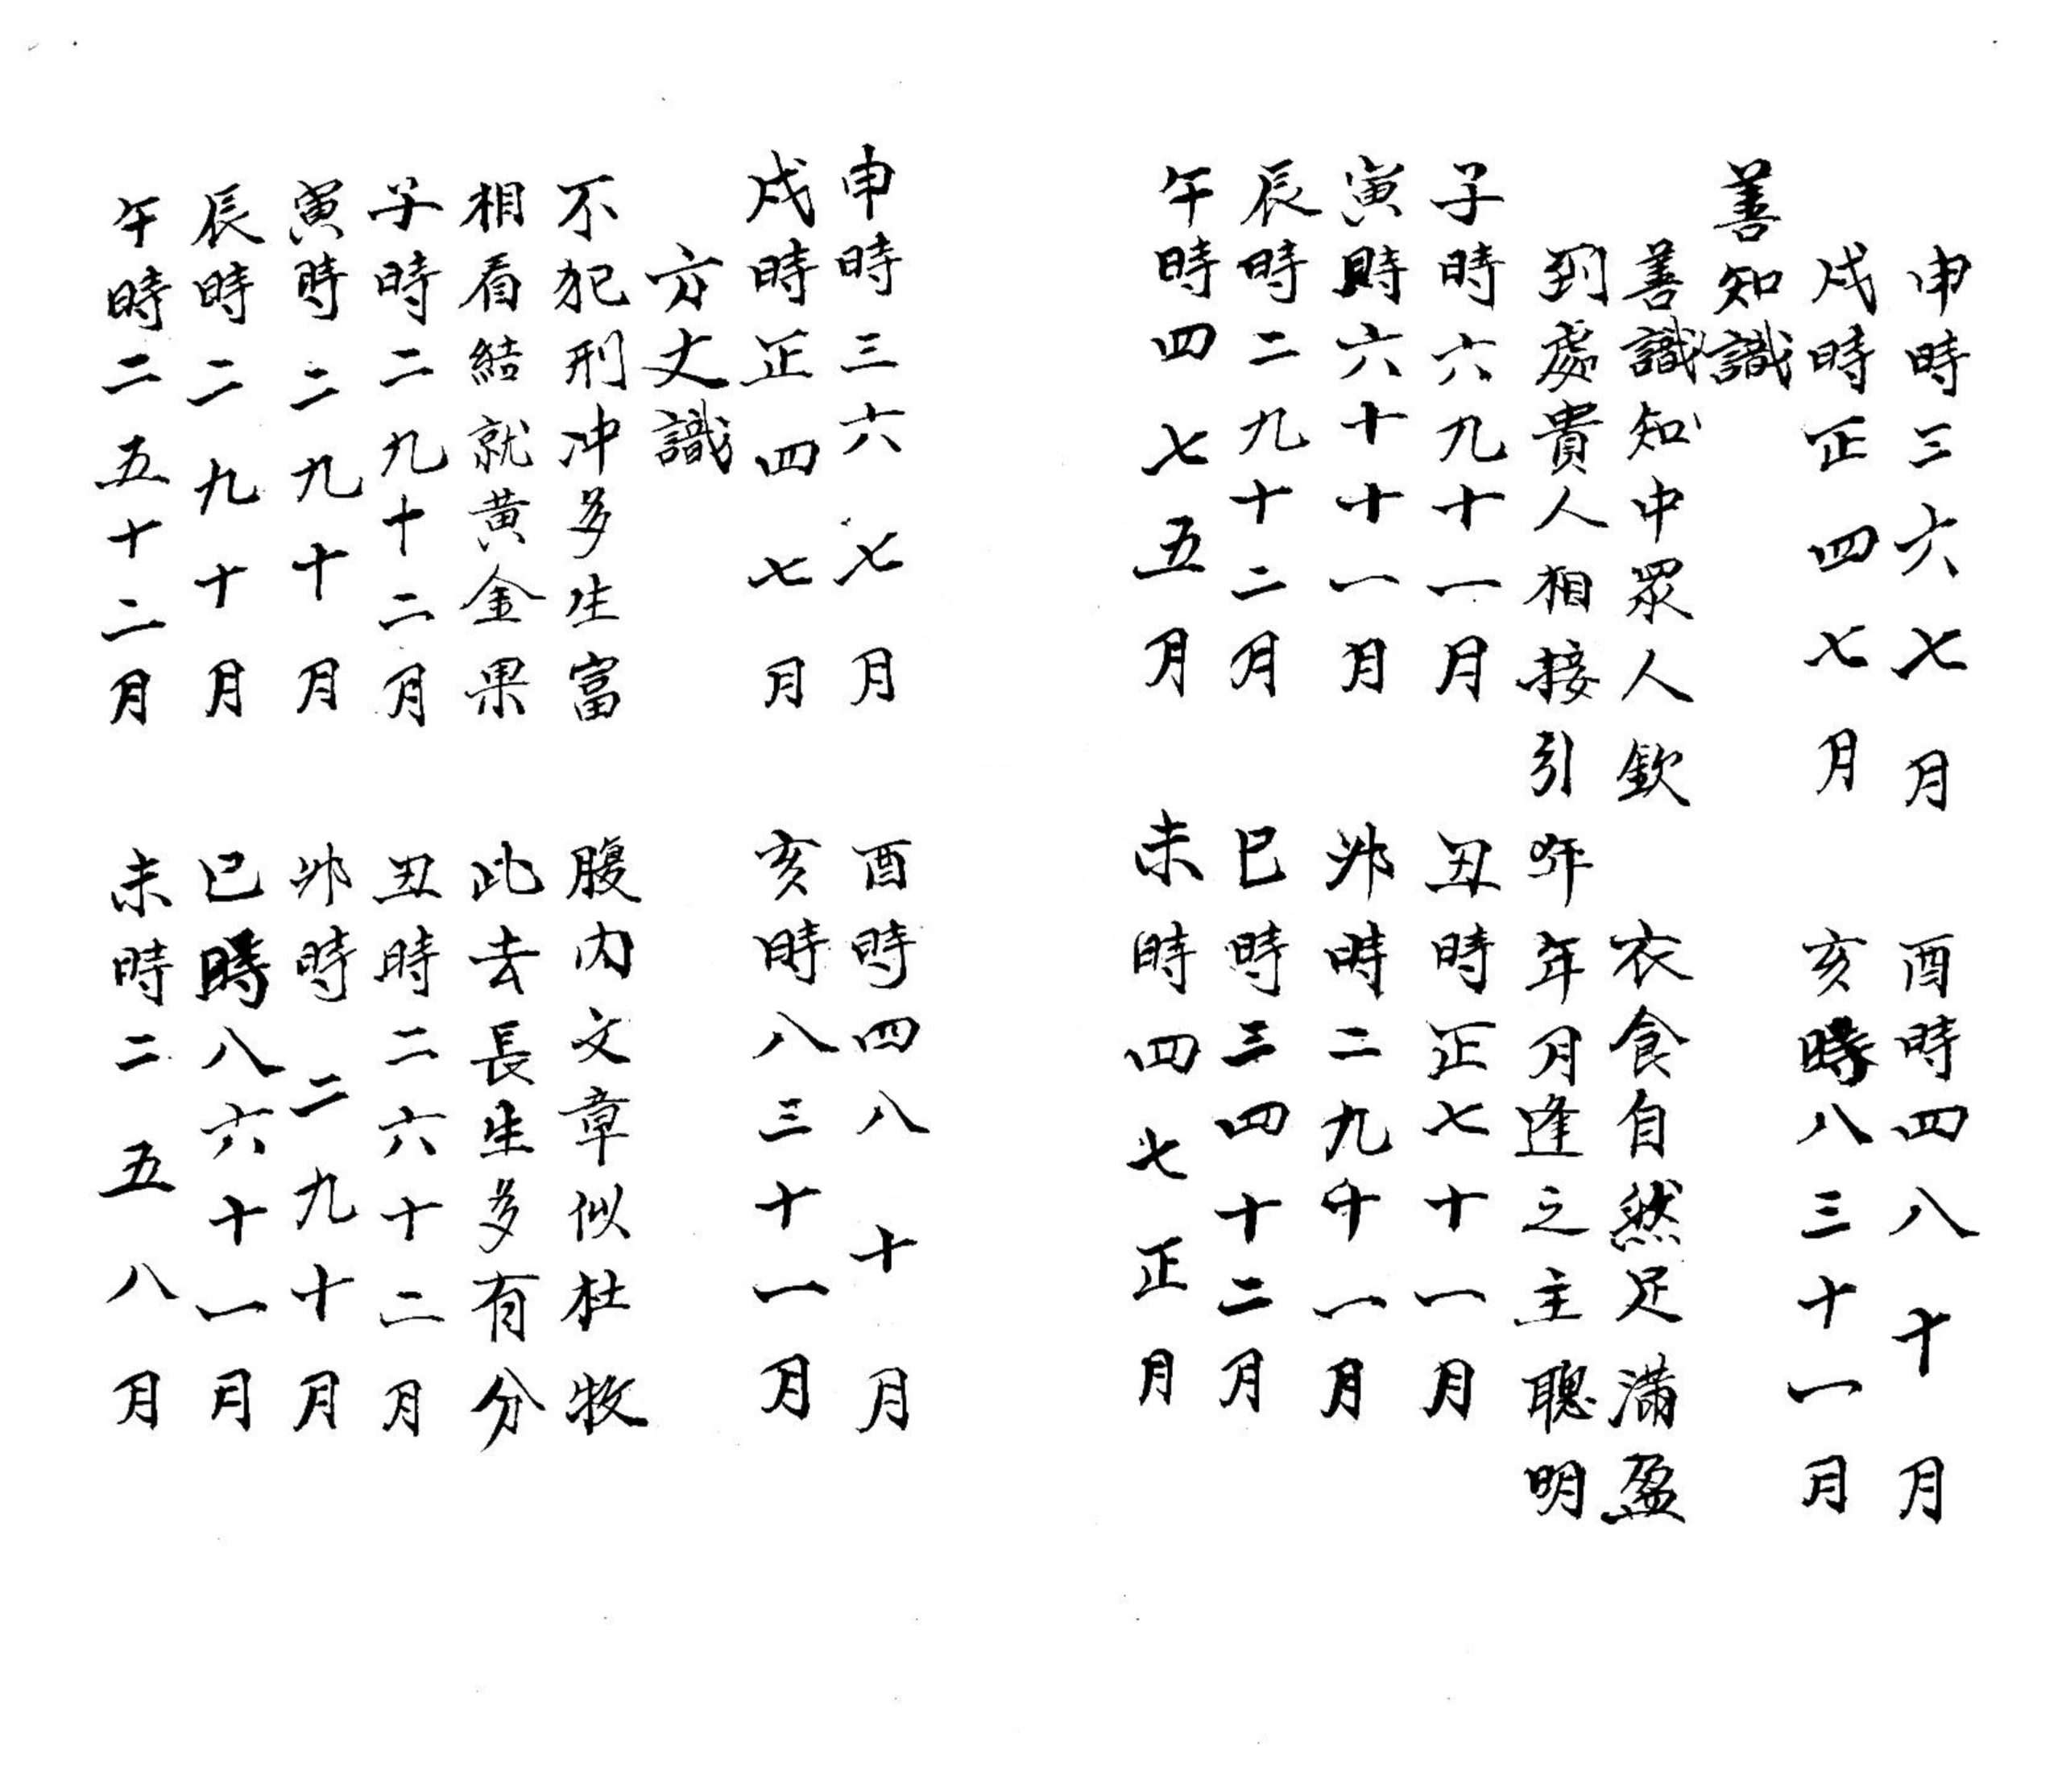 申時三六七月 酉時四八十月
戌時正四七月 亥時八三十一月
善知識
善識知中眾人欽 衣食自然足滿盈
到處貴人相接引 年年月逢之主聰明
子時六九十一月 丑時正七十一月
寅時六十十一月 卯時二九十一月
辰時二九十二月 巳時三四十二月
午時四七五月 未時四七正月
申時三六七月 酉時四八十月
戌時正四七月 亥時八三十一月
方丈識
不犯刑冲多生富 腹內文章似杜牧
相看結就黃金果 此去長生多有分
子時二九十二月 丑時二六十二月
寅時二九十月 卯時二九十月
辰時二九十月 巳時八六十一月
午時二五十二月 未時二五八月